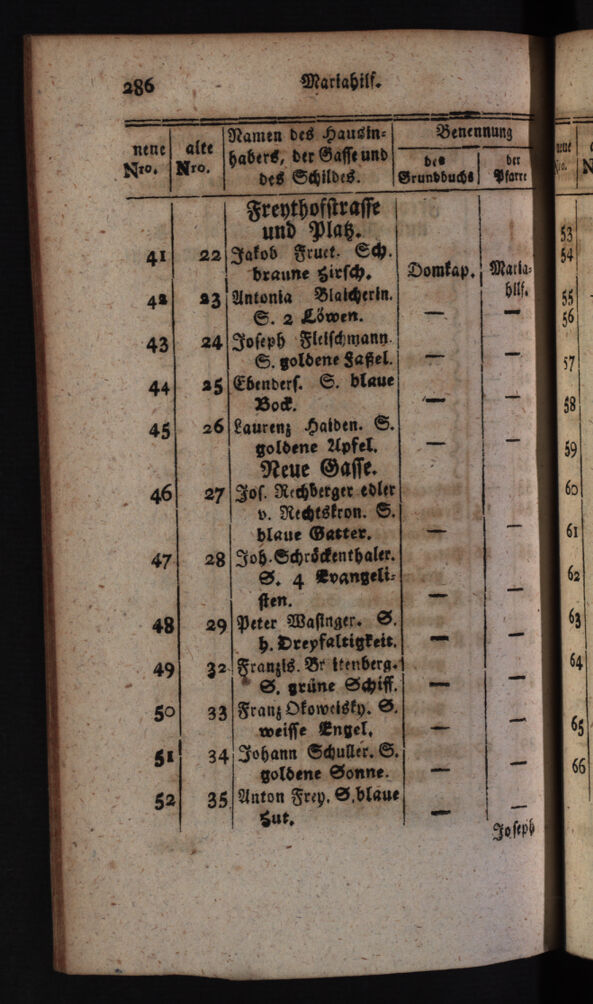 286 Mariahilf.
neue Nro. | alte Nro. | Namen des Hausin=habers, der Gasse und des Schildes. | Benennung
des Grundbuchs | der Pfarre
Freythofstrasse
und Platz.
41 22 Jakob Fruct. Sch.
braune Hirsch. Domkap. Maria=
hilf.
42 23 Antonia Blaicherin.
S. 2 Löwen. — —
43 24 Joseph Fleischmann.
S. goldene Faßel. — —
44 25 Ebenders. S. blaue
Bock. — —
45 26 Laurenz Haiden. S.
goldene Apfel. — —
Neue Gasse.
46 27 Jos. Rechberger edler
v. Rechtskron. S.
blaue Gatter. — —
47 28 Joh. Schröckenthaler.
S. 4 Evangeli=
sten. — —
48 29 Peter Wasinger. S.
h. Dreyfaltigkeit. — —
49 32 Franzis. Br itenberg.
S. grüne Schiff. — —
50 33 Franz Okoweisky. S.
weisse Engel. — —
51 34 Johann Schuller. S.
goldene Sonne. — —
52 35 Anton Frey. S. blaue
Hut. — —
Joseph
53
54
55
56
57
58
59
60
61
62
63
64
65
66